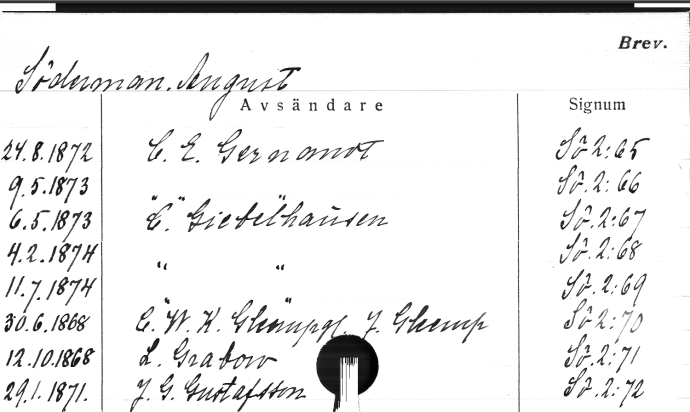 Brev.
Söderman. August
Avsändare Signum
24.8.1872 C. E. Gernandt Sö 2:65
9.5.1873 " " Sö. 2: 66
6.5.1873 C. Giebelhausen Sö. 2:67
4.2.1874 " " Sö. 2:68
11.7.1874 " " Sö. 2:69
30.6.1868 C. W. K. J. Sö 2:70
12.10.1868 L. Grabow Sö. 2:71
29.1.1871. J. G. Gustafsson Sö 2.:72